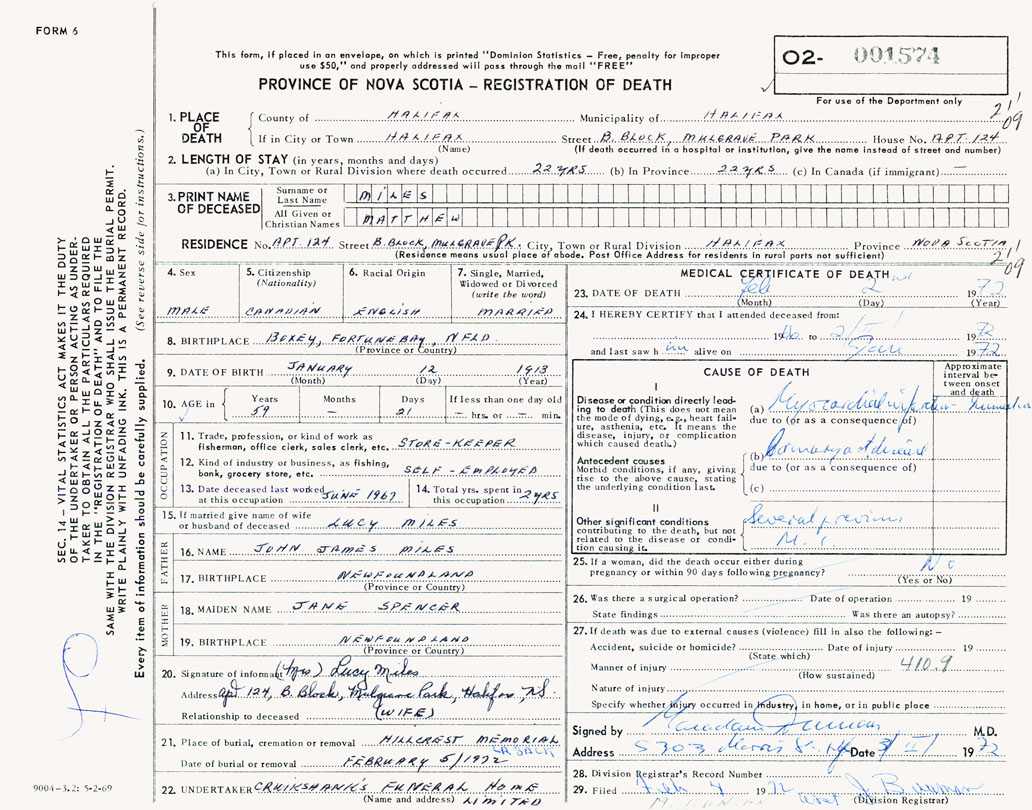 FORM 6
This form, if placed in an envelope, on which is printed "Dominion Statistics – Free, penalty for improper
use $50," and properly addressed will pass through the mail "FREE"
PROVINCE OF NOVA SCOTIA – REGISTRATION OF DEATH
O2- 001574
For use of the Department only
SEC. 14 – VITAL STATISTICS ACT MAKES IT THE DUTY
OF THE UNDERTAKER OR PERSON ACTING AS UNDER.
TAKER TO OBTAIN ALL THE PARTICULARS REQUIRED
IN THE "REGISTRATION OF DEATH" AND TO FILE THE
SAME WITH THE DIVISION REGISTRAR WHO SHALL ISSUE THE BURIAL PERMIT.
WRITE PLAINLY WITH UNFADING INK. THIS IS A PERMANENT RECORD.
Every item of information should be carefully supplied. (See reverse side for instructions.)
1. PLACE OF DEATH
County of HALIFAX Municipality of HALIFAX
If in City or Town HALIFAX Street B. BLOCK, MULGRAVE PARK House No. APT. 124
(Name) (If death occurred in a hospital or institution, give the name instead of street and number)
2. LENGTH OF STAY (in years, months and days)
(a) In City, Town or Rural Division where death occurred 22 YRS. (b) In Province 22 YRS (c) In Canada (if immigrant) —
3. PRINT NAME OF DECEASED
Surname or Last Name MILES
All Given or Christian Names MATTHEW
RESIDENCE No. APT. 124 Street B. BLOCK, MULGRAVE PK. City, Town or Rural Division HALIFAX Province NOVA SCOTIA
(Residence means usual place of abode. Post Office Address for residents in rural parts not sufficient)
4. Sex MALE
5. Citizenship (Nationality) CANADIAN
6. Racial Origin ENGLISH
7. Single, Married, Widowed or Divorced (write the word) MARRIED
8. BIRTHPLACE BOXEY, FORTUNE BAY, NFLD
(Province or Country)
9. DATE OF BIRTH JANUARY 12 1913
(Month) (Day) (Year)
10. AGE in Years 59 Months – Days 21 If less than one day old – hrs. or – min.
OCCUPATION
11. Trade, profession, or kind of work as
fisherman, office clerk, sales clerk, etc. STORE-KEEPER
12. Kind of industry or business, as fishing,
bank, grocery store, etc. SELF-EMPLOYED
13. Date deceased last worked at this occupation JUNE 1967
14. Total yrs. spent in this occupation 2 YRS
15. If married give name of wife
or husband of deceased LUCY MILES
FATHER
16. NAME JOHN JAMES MILES
17. BIRTHPLACE NEWFOUNDLAND
(Province or Country)
MOTHER
18. MAIDEN NAME JANE SPENCER
19. BIRTHPLACE NEWFOUNDLAND
(Province or Country)
20. Signature of informant (Mrs) Lucy Miles
Address Apt 124, B. Block, Mulgrave Park, Halifax, N.S.
Relationship to deceased (WIFE)
21. Place of burial, cremation or removal HILLCREST MEMORIAL
Date of burial or removal FEBRUARY 5/1972
22. UNDERTAKER CRUIKSHANK'S FUNERAL HOME
(Name and address) LIMITED
9004-3.2: 5-2-69
MEDICAL CERTIFICATE OF DEATH
23. DATE OF DEATH Feb 2nd 1972
(Month) (Day) (Year)
24. I HEREBY CERTIFY that I attended deceased from:
19 to 2/II/ 1972
and last saw h im alive on Jan 1972
CAUSE OF DEATH
Approximate interval between onset and death
I
Disease or condition directly lead-
ing to death (This does not mean
the mode of dying, e.g., heart fail-
ure, asthenia, etc. It means the
disease, injury, or complication
which caused death.)
(a) Myocardial infarction
due to (or as a consequence of)
Antecedent causes
Morbid conditions, if any, giving
rise to the above cause, stating
the underlying condition last.
(b) Coronary art disease
due to (or as a consequence of)
(c)
II
Other significant conditions
contributing to the death, but not
related to the disease or condi-
tion causing it.
Several previous
M. I.
25. If a woman, did the death occur either during
pregnancy or within 90 days following pregnancy? No
(Yes or No)
26. Was there a surgical operation? Date of operation 19
State findings Was there an autopsy?
27. If death was due to external causes (violence) fill in also the following: –
Accident, suicide or homicide? Date of injury 19
(State which)
Manner of injury 410.9
(How sustained)
Nature of injury
Specify whether injury occurred in industry, in home, or in public place
Signed by M.D.
Address 5303 Morris St. Date 3/II/ 1972
28. Division Registrar's Record Number
29. Filed Feb 4 1972
(Division Registrar)